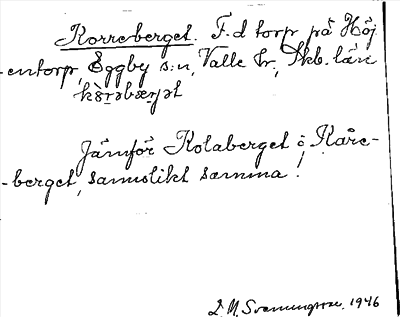 Korreberget. F.d torp på Höj
-entorp, Eggby s:n, Valle hr, Skb. län
kòrəbærjət
Jämför Kolaberget o. Kåre-
-berget, sannolikt samma!
D. M. 1946